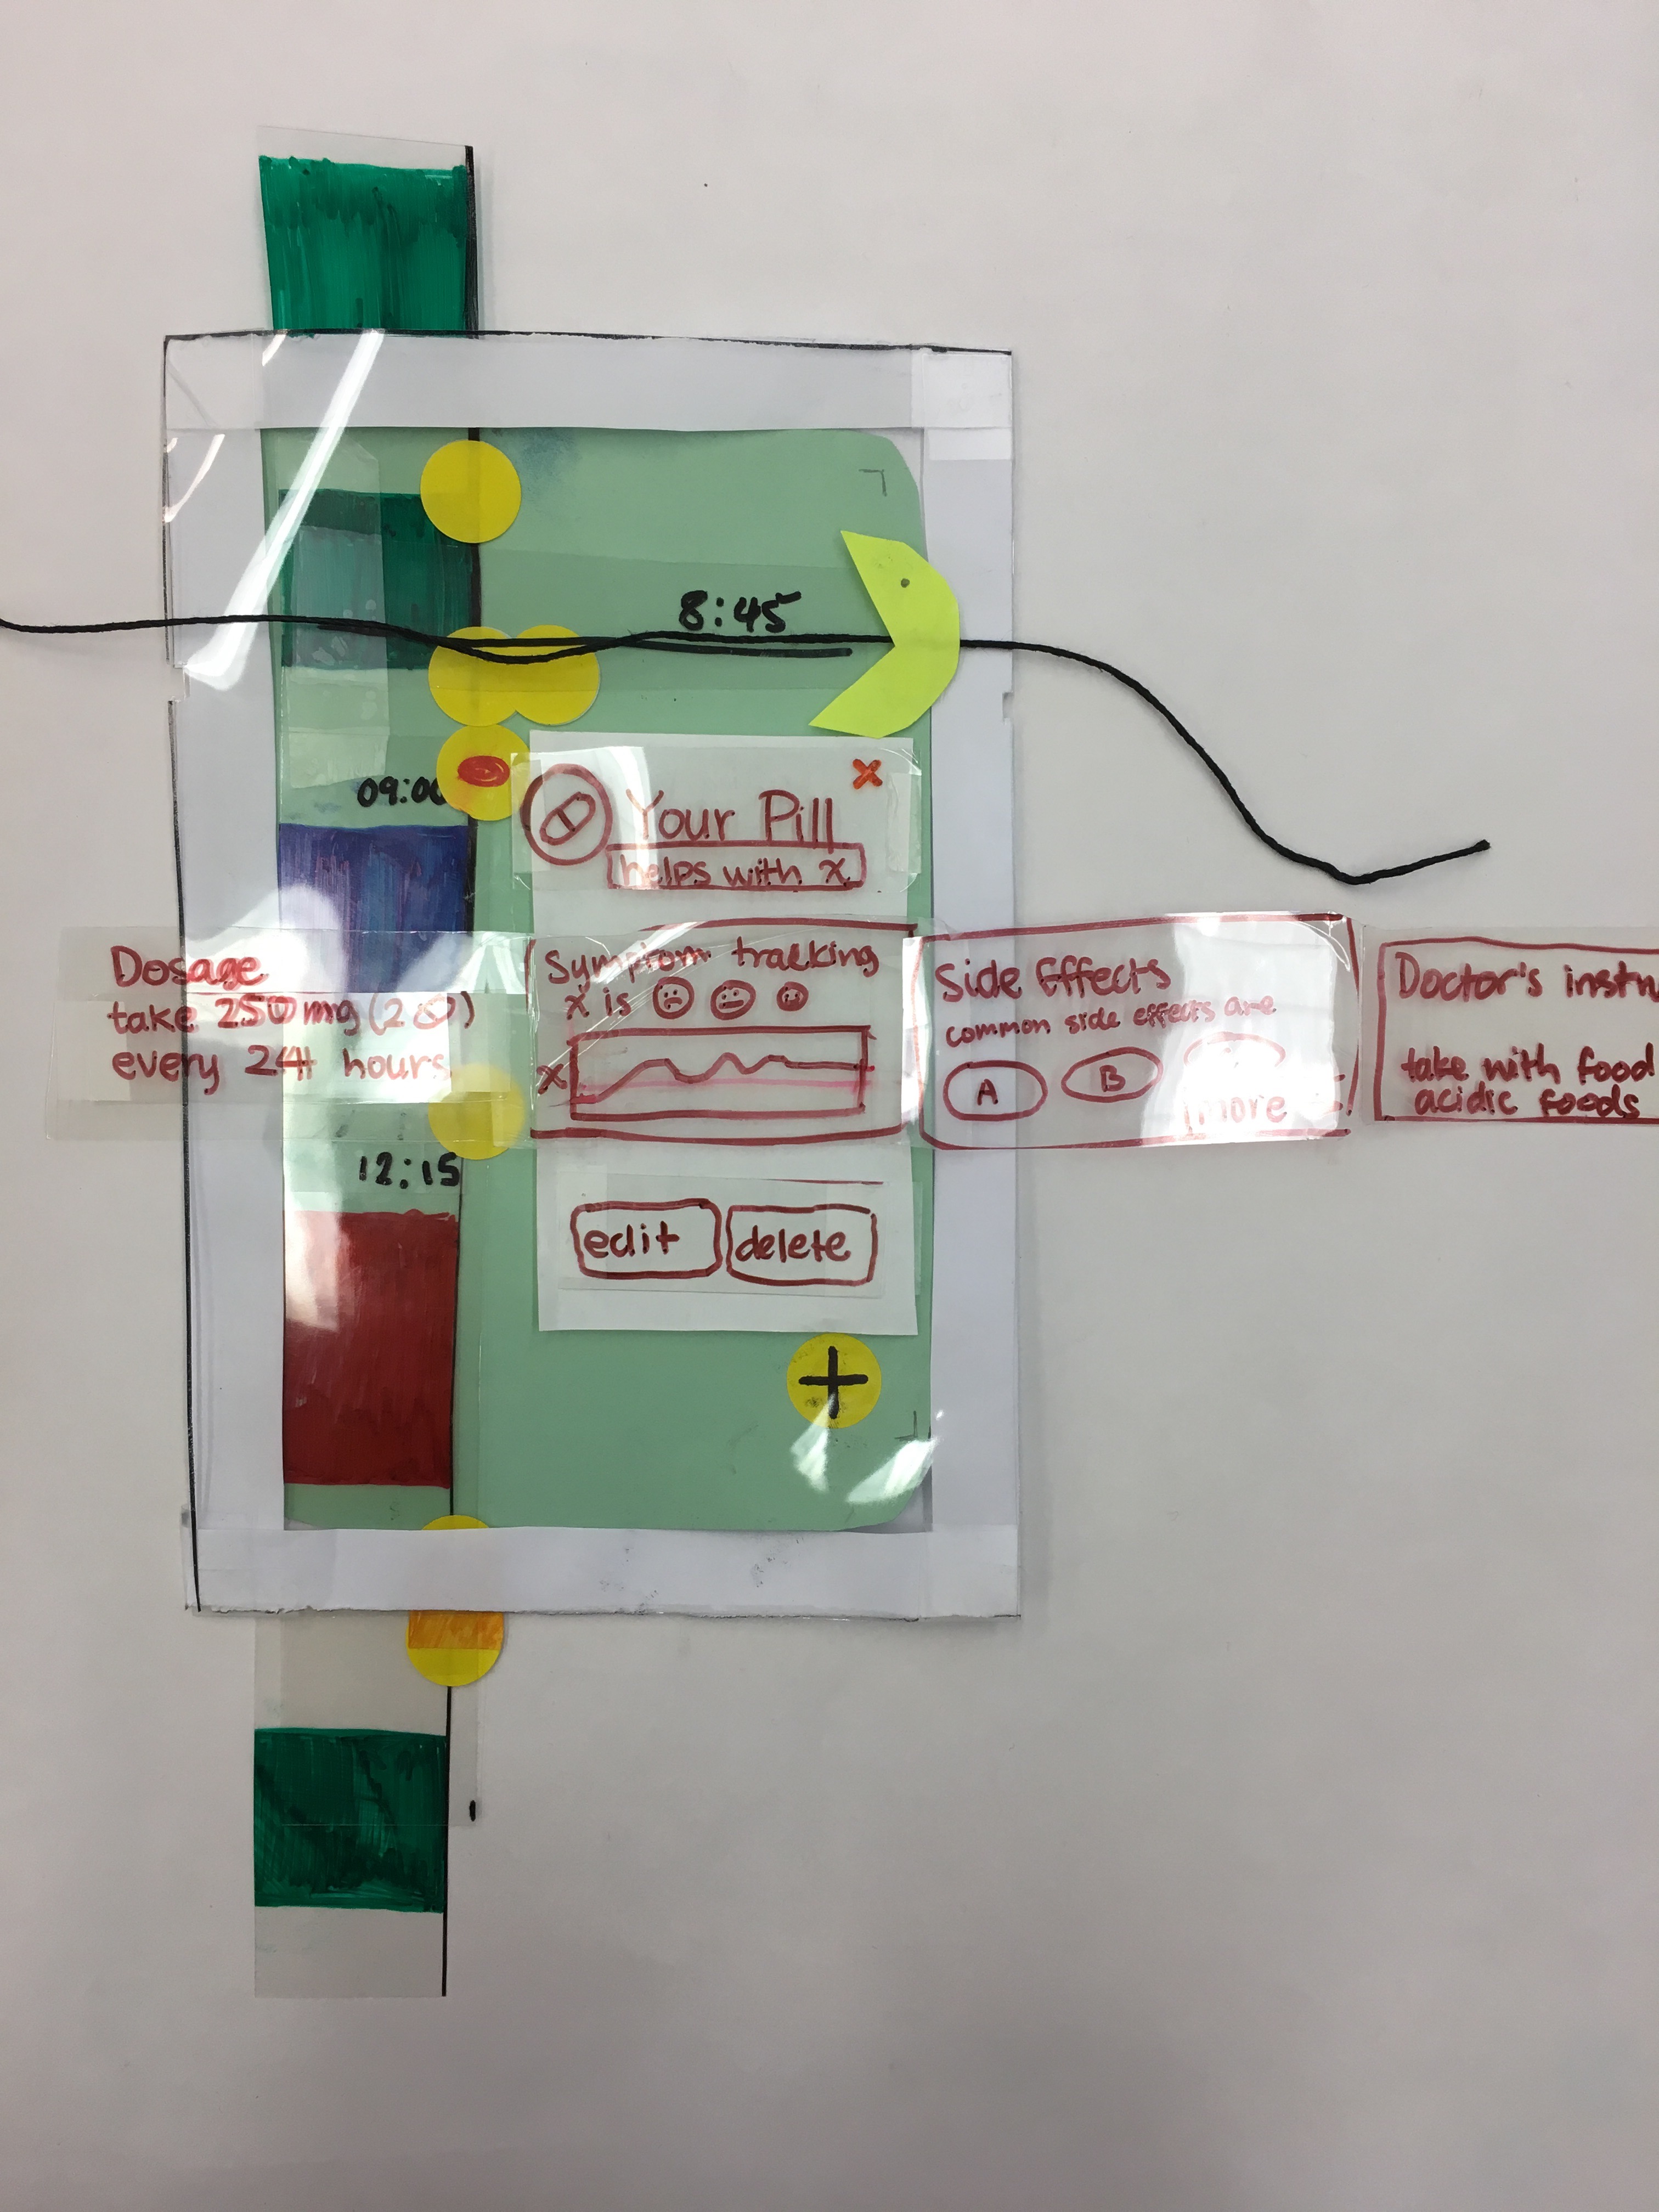 8:45
09:00
Your Pill
x
helps with x
Dosage
take 250mg (2)
every 24 hours
Symptom tracking
x is
x
Side Effects
common side effects are
A
B
more
Doctor's
take with food
acidic foods
12:15
edit
delete
+